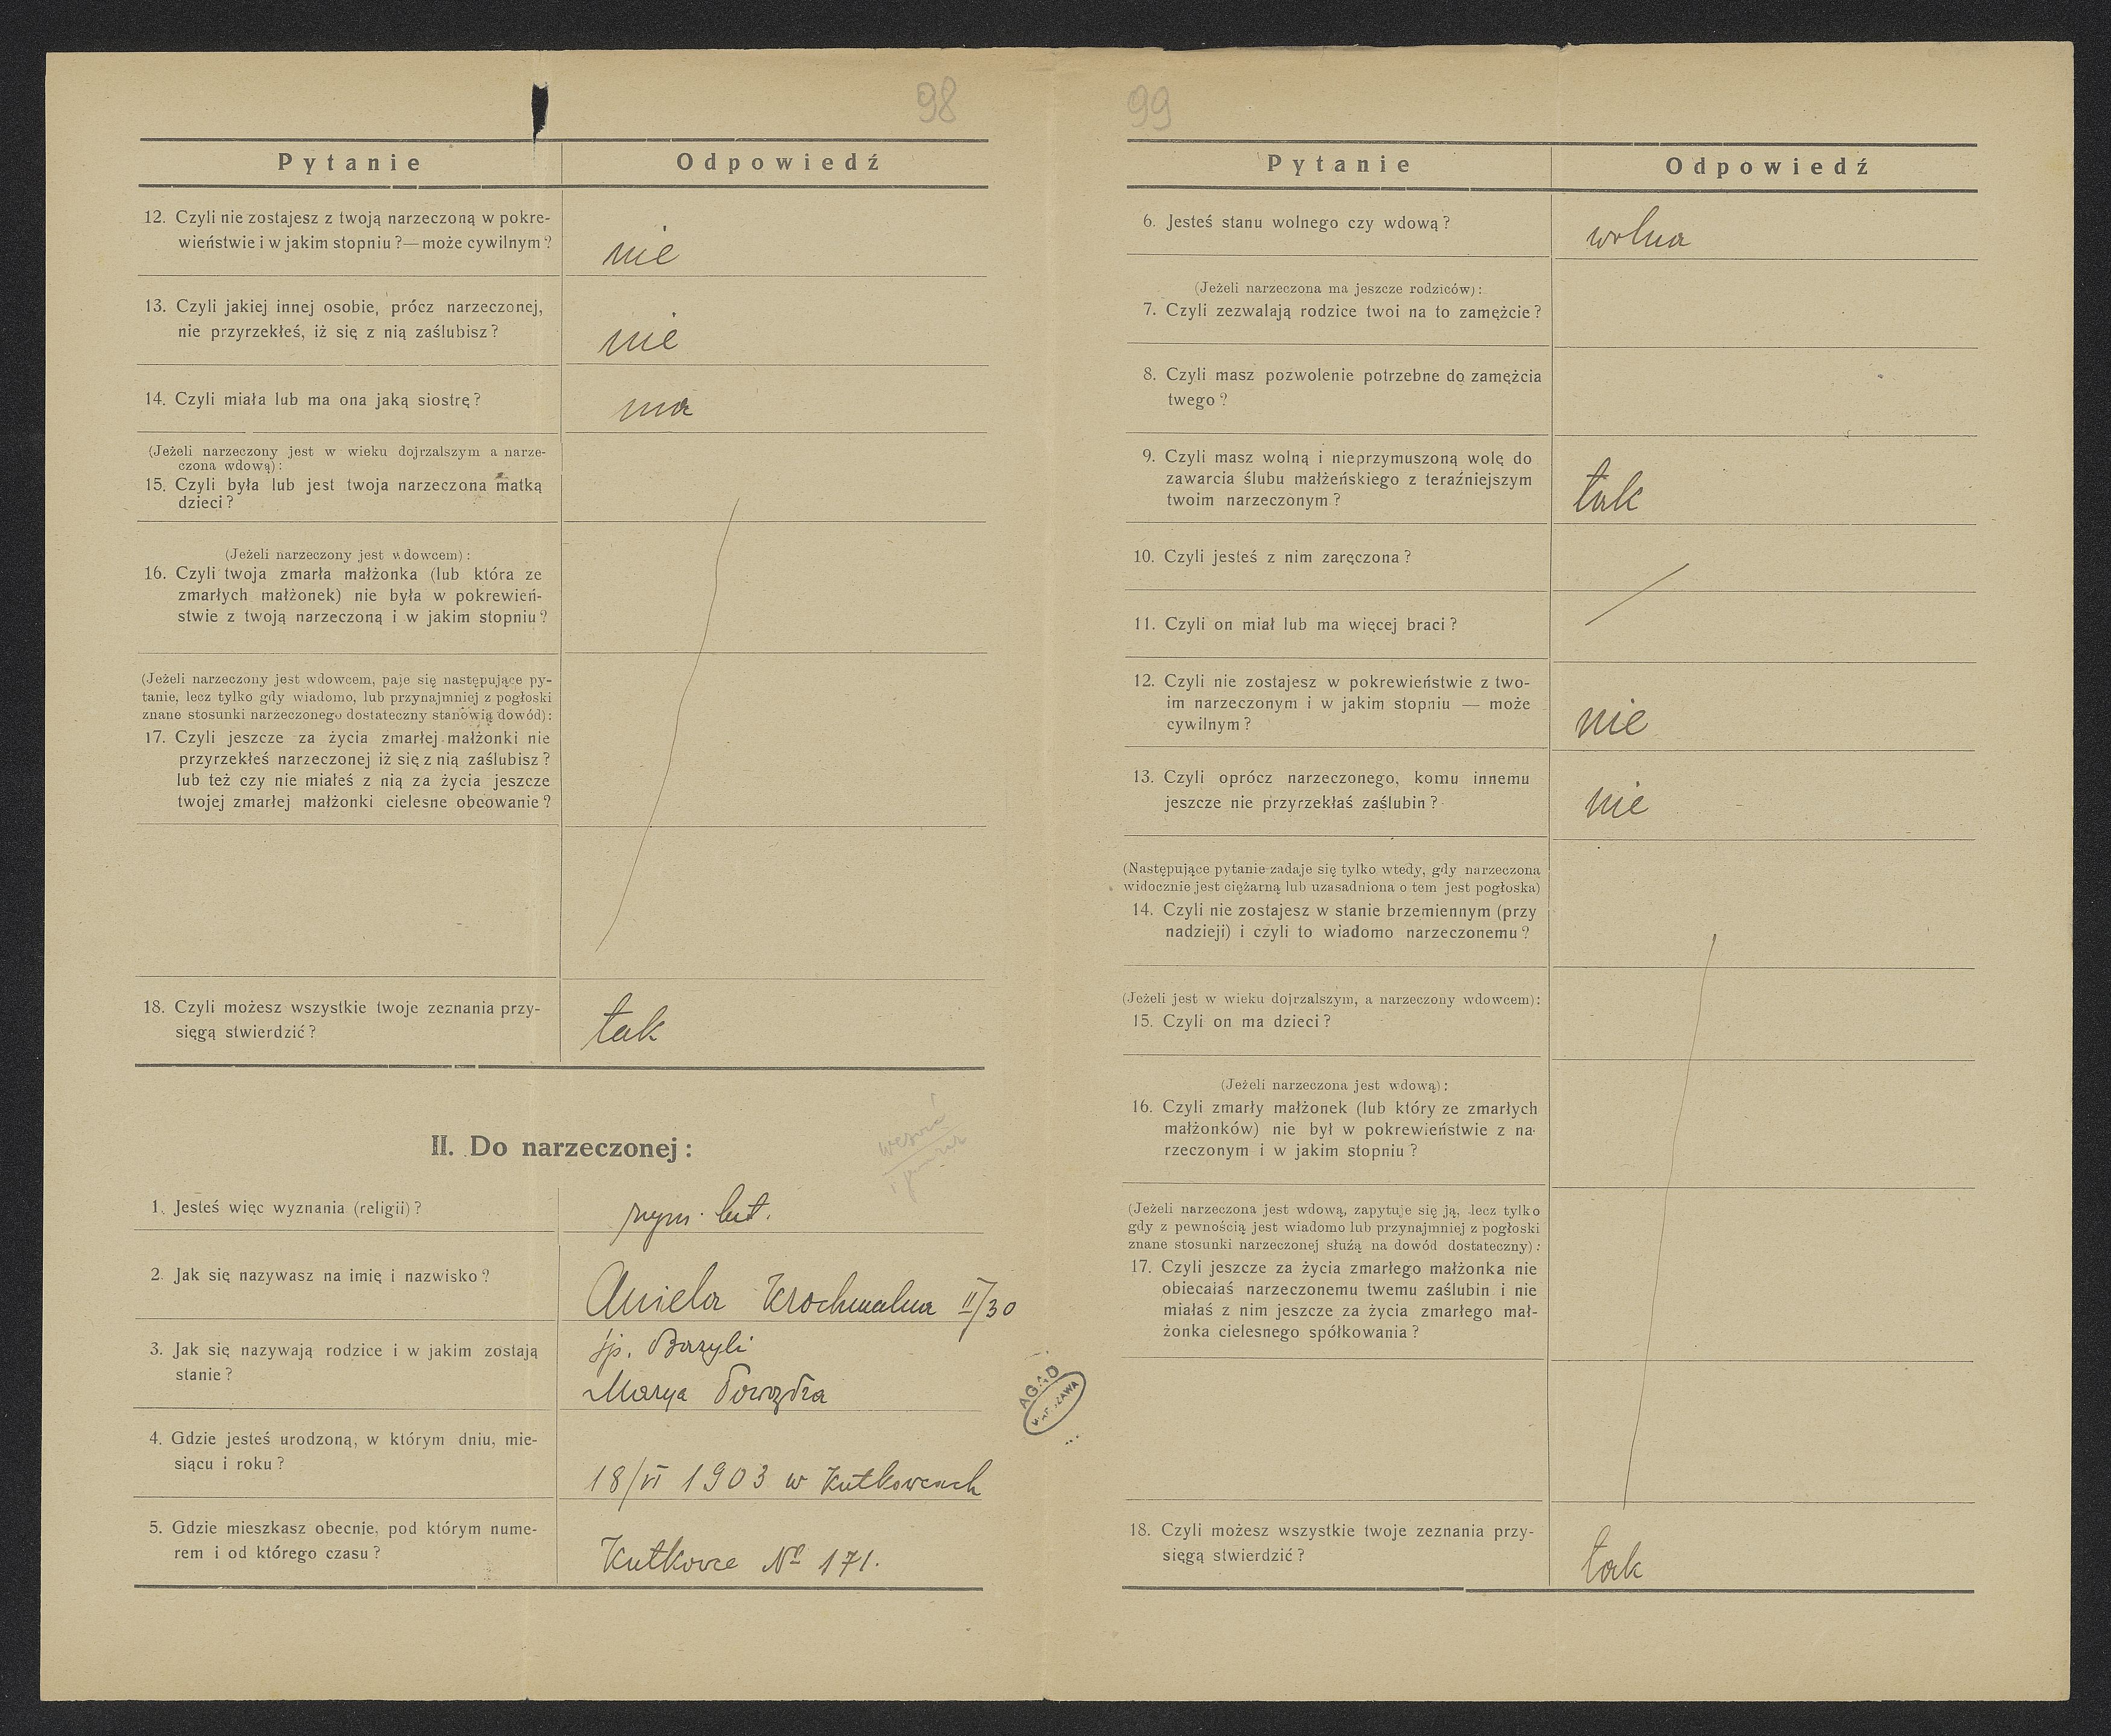 98
Pytanie Odpowiedź
12. Czyli nie zostajesz z twoją narzeczoną w pokre-
wieństwie i w jakim stopniu ? — może cywilnym ?
nie
13. Czyli jakiej innej osobie, prócz narzeczonej,
nie przyrzekłeś, iż się z nią zaślubisz ?
nie
14. Czyli miała lub ma ona jaką siostrę ?
ma
(Jeżeli narzeczony jest w wieku dojrzalszym a narze-
czona wdową) :
15. Czyli była lub jest twoja narzeczona matką
dzieci ?
(Jeżeli narzeczony jest wdowcem) :
16. Czyli twoja zmarła małżonka (lub która ze
zmarłych małżonek) nie była w pokrewień-
stwie z twoją narzeczoną i w jakim stopniu ?
(Jeżeli narzeczony jest wdowcem, paje się następujące py-
tanie, lecz tylko gdy wiadomo, lub przynajmniej z pogłoski
znane stosunki narzeczonego dostateczny stanowią dowód) :
17. Czyli jeszcze za życia zmarłej małżonki nie
przyrzekłeś narzeczonej iż się z nią zaślubisz ?
lub też czy nie miałeś z nią za życia jeszcze
twojej zmarłej małżonki cielesne obcowanie ?
18. Czyli możesz wszystkie twoje zeznania przy-
sięgą stwierdzić ?
tak
II. Do narzeczonej :
1. Jesteś więc wyznania (religii) ?
rzym. łat.
2. Jak się nazywasz na imię i nazwisko ?
Aniela Krochmalna II/30
3. Jak się nazywają rodzice i w jakim zostają
stanie ?
śp. Bazyli
Marya
4. Gdzie jesteś urodzoną, w którym dniu, mie-
siącu i roku ?
18/VI 1903 w Kutkowcach
5. Gdzie mieszkasz obecnie, pod którym nume-
rem i od którego czasu ?
Kutkowce № 171.
AGAD
WARSZAWA
99
Pytanie Odpowiedź
6. Jesteś stanu wolnego czy wdową ?
wolna
(Jeżeli narzeczona ma jeszcze rodziców) :
7. Czyli zezwalają rodzice twoi na to zamężcie ?
8. Czyli masz pozwolenie potrzebne do zamężcia
twego ?
9. Czyli masz wolną i nieprzymuszoną wolę do
zawarcia ślubu małżeńskiego z teraźniejszym
twoim narzeczonym ?
tak
10. Czyli jesteś z nim zaręczona ?
11. Czyli on miał lub ma więcej braci ?
12. Czyli nie zostajesz w pokrewieństwie z two-
im narzeczonym i w jakim stopniu — może
cywilnym ?
nie
13. Czyli oprócz narzeczonego, komu innemu
jeszcze nie przyrzekłaś zaślubin ?
nie
(Następujące pytanie zadaje się tylko wtedy, gdy narzeczona
widocznie jest ciężarną lub uzasadniona o tem jest pogłoska)
14. Czyli nie zostajesz w stanie brzemiennym (przy
nadzieji) i czyli to wiadomo narzeczonemu ?
(Jeżeli jest w wieku dojrzalszym, a narzeczony wdowcem) :
15. Czyli on ma dzieci ?
(Jeżeli narzeczona jest wdową) :
16. Czyli zmarły małżonek (lub który ze zmarłych
małżonków) nie był w pokrewieństwie z na-
rzeczonym i w jakim stopniu ?
(Jeżeli narzeczona jest wdową, zapytuje się ją, lecz tylko
gdy z pewnością jest wiadomo lub przynajmniej z pogłoski
znane stosunki narzeczonej służą na dowód dostateczny) :
17. Czyli jeszcze za życia zmarłego małżonka nie
obiecałaś narzeczonemu twemu zaślubin i nie
miałaś z nim jeszcze za życia zmarłego mał-
żonka cielesnego spółkowania ?
18. Czyli możesz wszystkie twoje zeznania przy-
sięgą stwierdzić ?
tak